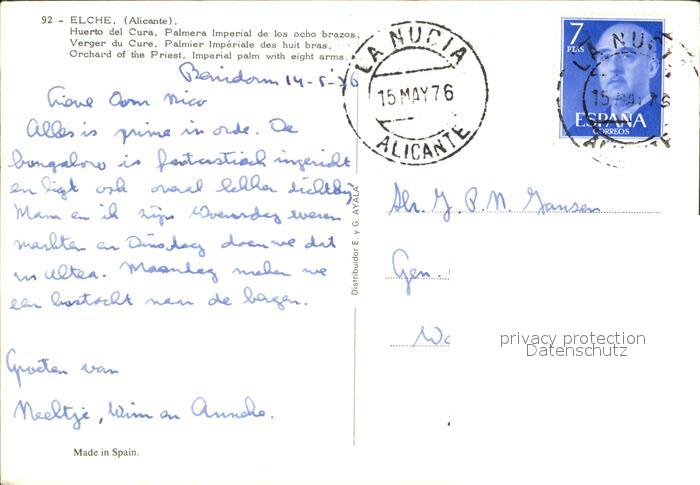 92 - ELCHE. (Alicante).
Huerto del Cura, Palmera Imperial de los ocho brazos.
Verger du Cure, Palmier Impériale des huit bras.
Orchard of the Priest, Imperial palm with eight arms.
Benidorm 14-5-76
Lieve Oom Nico
Alles is prima in orde. De
bungalow is fantastisch ingericht
en ligt ook overal lekker dichtbij
Mam en ik zijn Woensdag wezen
markten en Dinsdag doen we dat
in Altea. Maandag maken we
een bustocht naar de bergen.
Groeten van
Neeltje, Wim en Anneke.
Made in Spain.
Distribuidor E. y G. AYALA
LA NUCIA
15 MAY 76
ALICANTE
7
PTAS
ESPAÑA
CORREOS
LA NUCIA
15 MAY 76
Dhr. J. P. N. Jansen
Gen.
Wo
privacy protection
Datenschutz